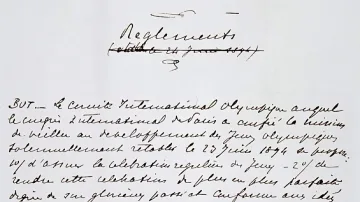 Règlements
(votés le 24 Juin 1894)
BUT — Le Comité International Olympique auquel
le congrès International de Paris a confié la mission
de veiller au développement des Jeux Olympiques
solennellement rétablis le 23 Juin 1894 se propose
1o/ d'assurer la célébration régulière des Jeux — 2o/ de
rendre cette célébration de plus en plus parfaite
digne de son glorieux passé et conforme aux